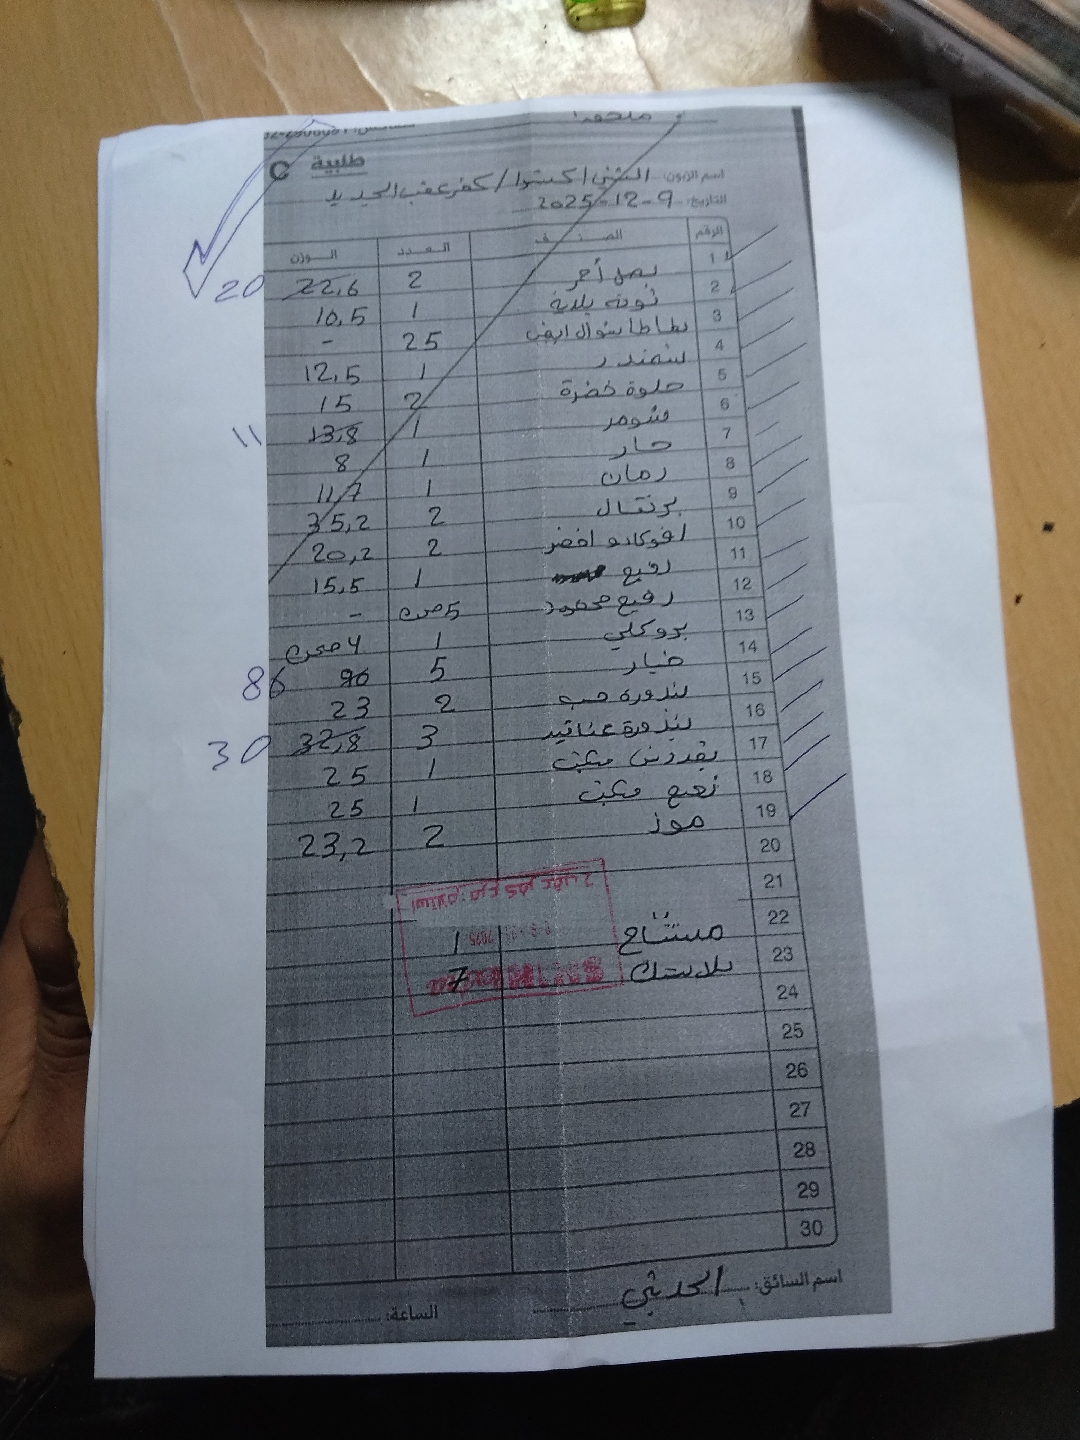 ملحمة
طلبية C
اسم الزبون: الثني اكسترا / كفر عقب الجديد
التاريخ: 9-12-2025
الرقم الصنف العدد الوزن
1 بصل أحمر 2 22,6 20
2 ثومة بلدية 1 10,5
3 بطاطا شوال ابيض 25 -
4 شمندر 1 12,5
5 حلوة خضرة 2 15
6 شومر 1 13,8 11
7 حار 1 8
8 رمان 1 11,7
9 برتقال 2 35,2
10 افوكادو اخضر 2 20,2
11 رفيع 1 15,5
12 رفيع محمود 5 صحن -
13 بروكلي 1 4 صحن
14 خيار 5 90 86
15 بندورة حب 2 23
16 بندورة عناقيد 3 32,8 30
17 بقدونس مكبت 1 25
18 نعنع مكبت 1 25
19 موز 2 23,2
20
21
22 مشتاح 1
23 بلاستك 7
24
25
26
27
28
29
30
استلام فرع كفر عقب 2
2025
اسم السائق: الحدثي
الساعة: